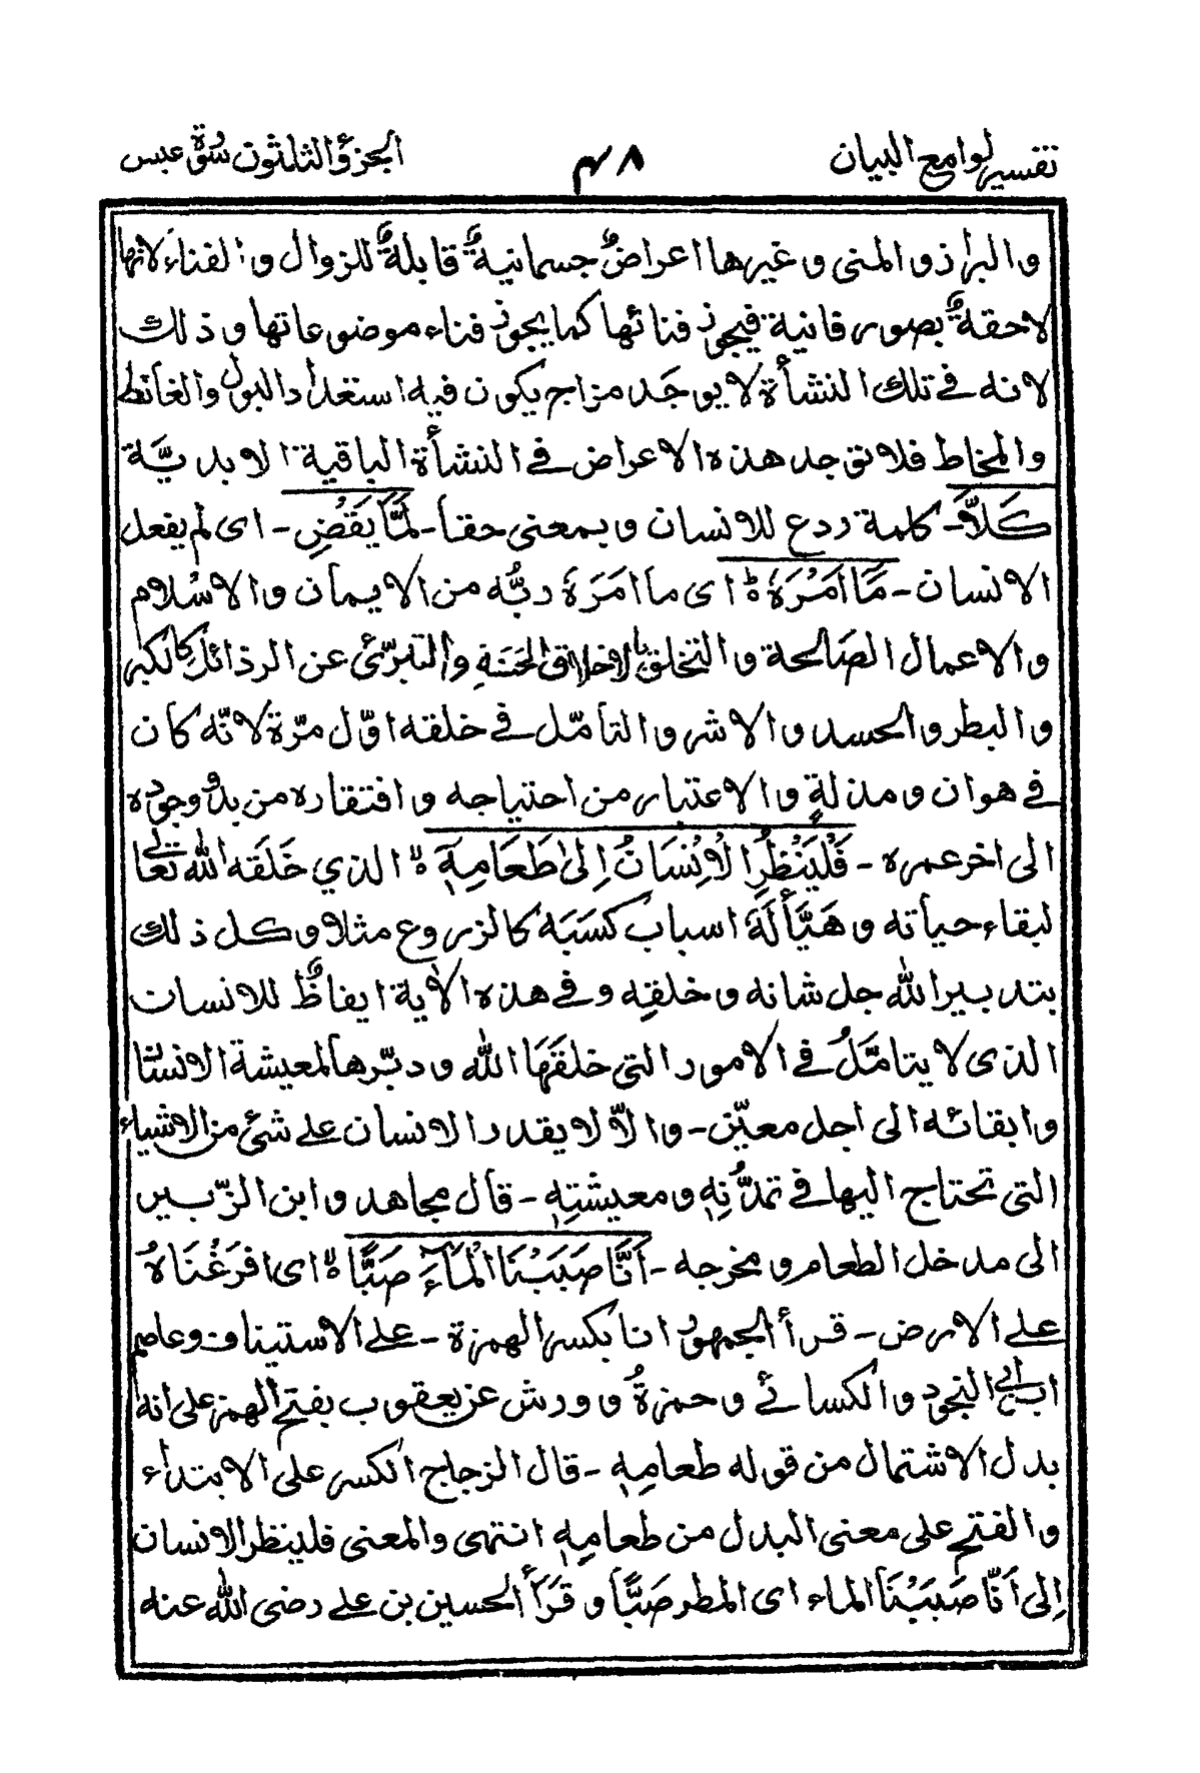 تفسير لوامع البيان ٤٨ الجزؤ الثلثون سورة عبس
والبراز والمنى وغيرها اعراضٌ جسمانيةٌ قابلةٌ للزوال والفناء لانها
لاحقةٌ بصور فانية فيجوز فنائها كما يجوز فناء موضوعاتها وذلك
لانه فى تلك النشأة لا يوجد مزاج يكون فيه استعداد البول والغائط
والمخاط فلا توجد هذه الاعراض فى النشأة الباقية الابديّة
كَلَّا - كلمة ردع للانسان وبمعنى حقاً - لَمَّا يَقْضِ - اى لم يفعل
الانسان - مَا اَمَرَهٗ ۝ اى ما امَرَهٗ ربُّه من الايمان والاسلام
والاعمال الصّالحة والتخلق بالاخلاق الحَسَنَةِ والتبرّئ عن الرذائل كالكبر
والبطر والحسد والاشر والتأمّل فى خلقه اوّل مرّة لانّه كان
فى هوان ومذلةٍ والاعتبار من احتياجه وافتقاره من بدؤ وجوده
الى اخر عمره - فَلْيَنْظُرِ الْاِنْسَانُ اِلىٰ طَعَامِهٖٓ ۝ الذي خَلَقه الله تعالىٰ
لبقاء حيأته وهَيَّأ لَهٗ اسباب كَسَبَه كالزروع مثلا وكل ذلك
بتدبير الله جل شانه وخلقِه وفى هذه الآية ايقاظٌ للانسان
الذى لا يتامَّلُ فى الامور التى خلقَهَا الله ودبّرها لمعيشة الانسان
وابقائه الى اجل معيّن - والاّ لا يقدر الانسان على شئ من الاشياء
التى تحتاج اليها فى تمدُّنِهٖ ومعيشتِهٖ - قال مجاهد وابن الزّبير
الى مدخل الطعام ومخرجه - اَنَّا صَبَبْنَا الْمَآءَ صَبًّا ۝ اى افرَغْنَاهُ
على الارض - قرأ الجمهور انا بكسر الهمزة - على الاستيناف وعاصم
ابن ابى النجود والكسائى وحمزةُ وورش عن يعقوب بفتح الهمز على انه
بدل الاشتمال من قوله طعامِهٖ - قال الزجاج الكسر على الابتداء
والفتح على معنى البدل من طعامِهٖ انتهى والمعنى فلينظر الانسان
اِلى اَنّا صَبَبْنَا الماء اى المطر صَبًّا وقَرَأ الحسين بن على رضى الله عنه